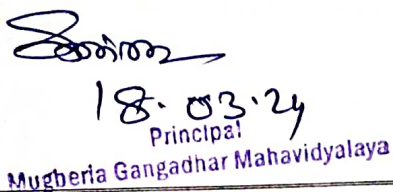 18.03.24
Principal
Mugberia Gangadhar Mahavidyalaya